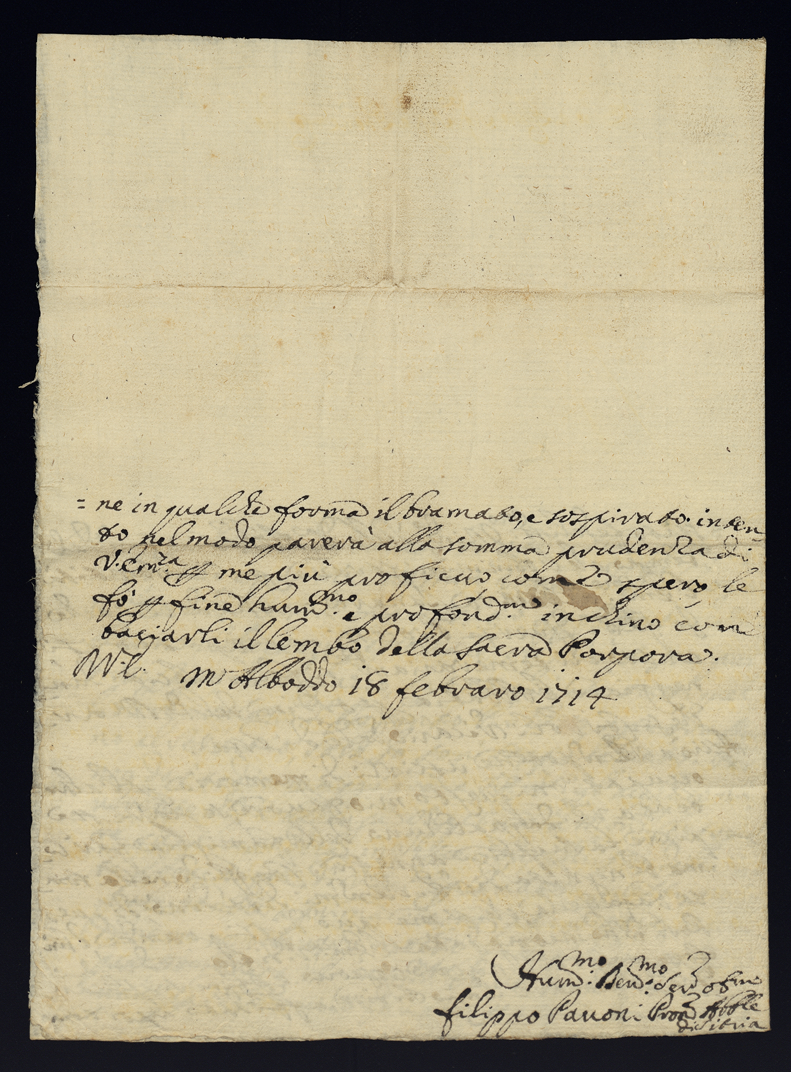 = ne in qualche forma il bramato, e sospirato inten-
to nel modo parerà alla somma prudenza di
V. Em.za p me più proficuo, come spero, le
fò p fine hum.mo e profond.mo inchino con
baciarli il lembo della sacra Porpora.
M.te Alboddo 18 febraro 1714
Hum.mo Dev.mo Ser.
Filippo Pavoni